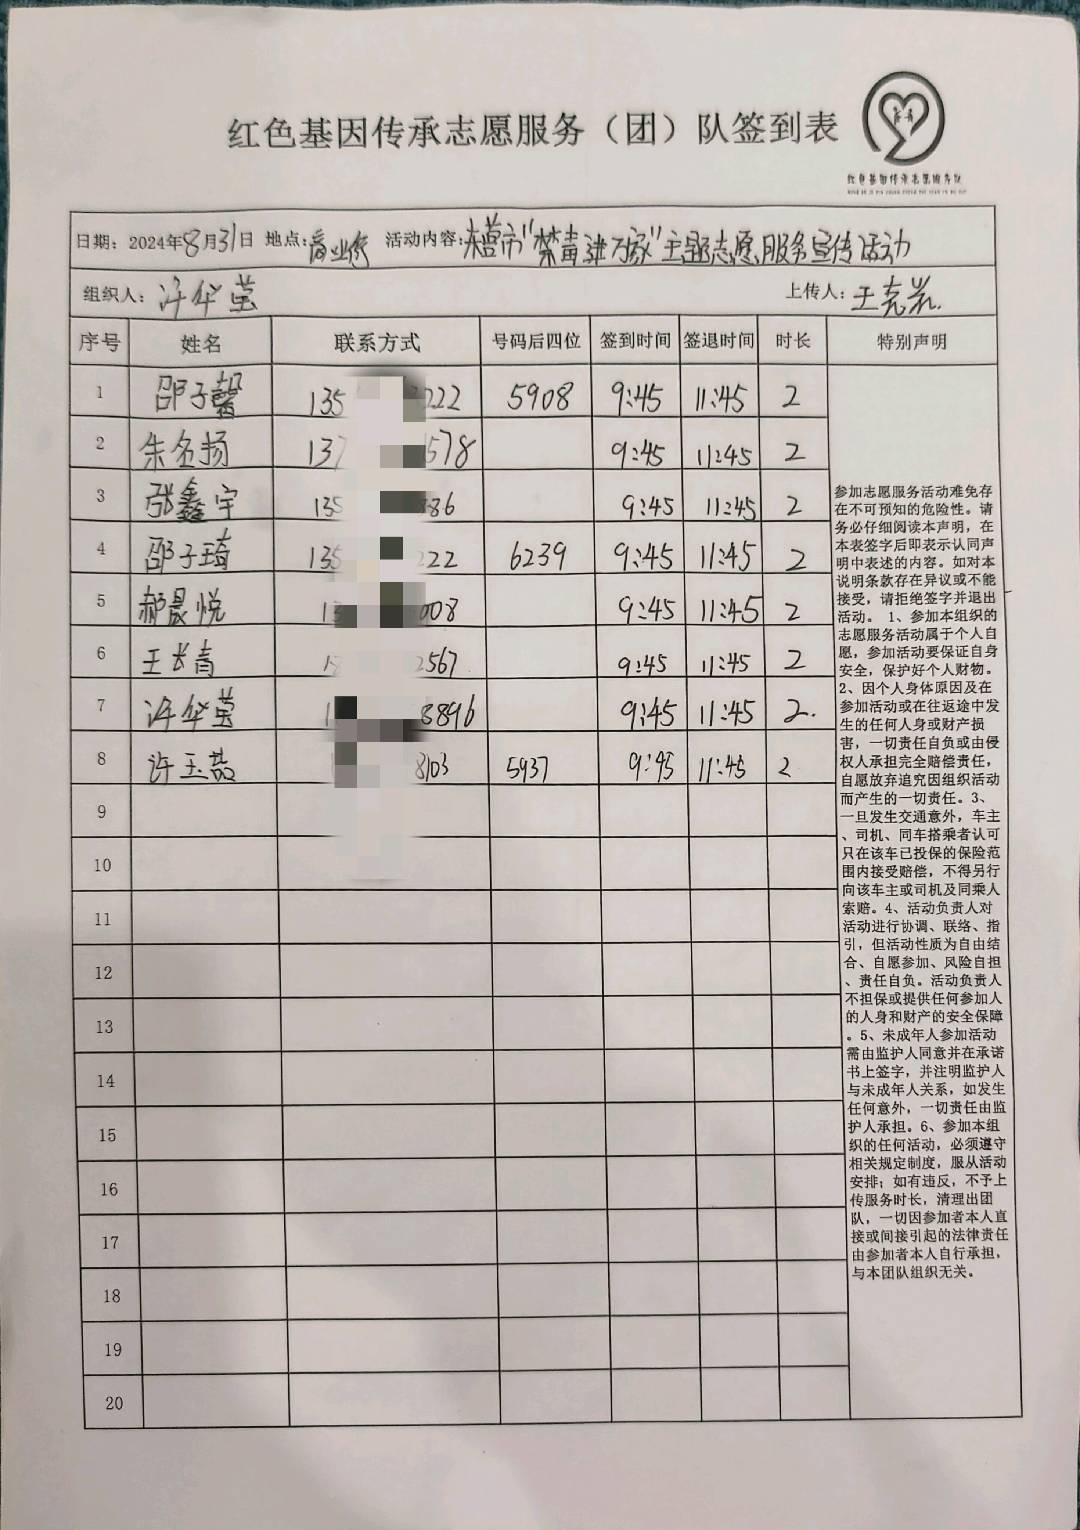 红色基因传承志愿服务（团）队签到表
红色基因传承志愿服务队
日期：2024年8月31日 地点：商业街 活动内容：东营市"禁毒进万家"主题志愿服务宣传活动
组织人：许华莹 上传人：王克岩
序号 姓名 联系方式 号码后四位 签到时间 签退时间 时长 特别声明
1 邵子馨 135 222 5908 9:45 11:45 2
2 朱名扬 137 578 9:45 11:45 2
3 张鑫宇 135 886 9:45 11:45 2
4 邵子琦 135 222 6239 9:45 11:45 2
5 郝晨悦 13 008 9:45 11:45 2
6 王长青 2567 9:45 11:45 2
7 许华莹 1 8896 9:45 11:45 2.
8 许玉喆 8103 5937 9:45 11:45 2
9
10
11
12
13
14
15
16
17
18
19
20
参加志愿服务活动难免存
在不可预知的危险性。请
务必仔细阅读本声明，在
本表签字后即表示认同声
明中表述的内容。如对本
说明条款存在异议或不能
接受，请拒绝签字并退出
活动。 1、参加本组织的
志愿服务活动属于个人自
愿，参加活动要保证自身
安全，保护好个人财物。
2、因个人身体原因及在
参加活动或在往返途中发
生的任何人身或财产损
害，一切责任自负或由侵
权人承担完全赔偿责任，
自愿放弃追究因组织活动
而产生的一切责任。3、
一旦发生交通意外，车主
、司机、同车搭乘者认可
只在该车已投保的保险范
围内接受赔偿，不得另行
向该车主或司机及同乘人
索赔。4、活动负责人对
活动进行协调、联络、指
引，但活动性质为自由结
合、自愿参加、风险自担
、责任自负。活动负责人
不担保或提供任何参加人
的人身和财产的安全保障
。5、未成年人参加活动
需由监护人同意并在承诺
书上签字，并注明监护人
与未成年人关系，如发生
任何意外，一切责任由监
护人承担。6、参加本组
织的任何活动，必须遵守
相关规定制度，服从活动
安排；如有违反，不予上
传服务时长，清理出团
队，一切因参加者本人直
接或间接引起的法律责任
由参加者本人自行承担，
与本团队组织无关。